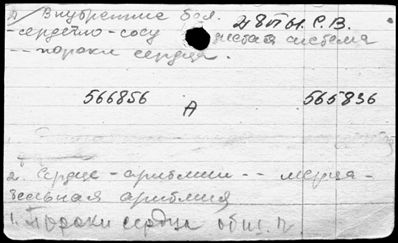 Внутренние бол. 4 8 Т Ы. С. В.
-сердечно-сосу дистая система
-- пороки сердца.
566856 А 565836
2. Сердце - аритмии -- мерца-
тельная аритмия
1. Пороки сердца общ. п.